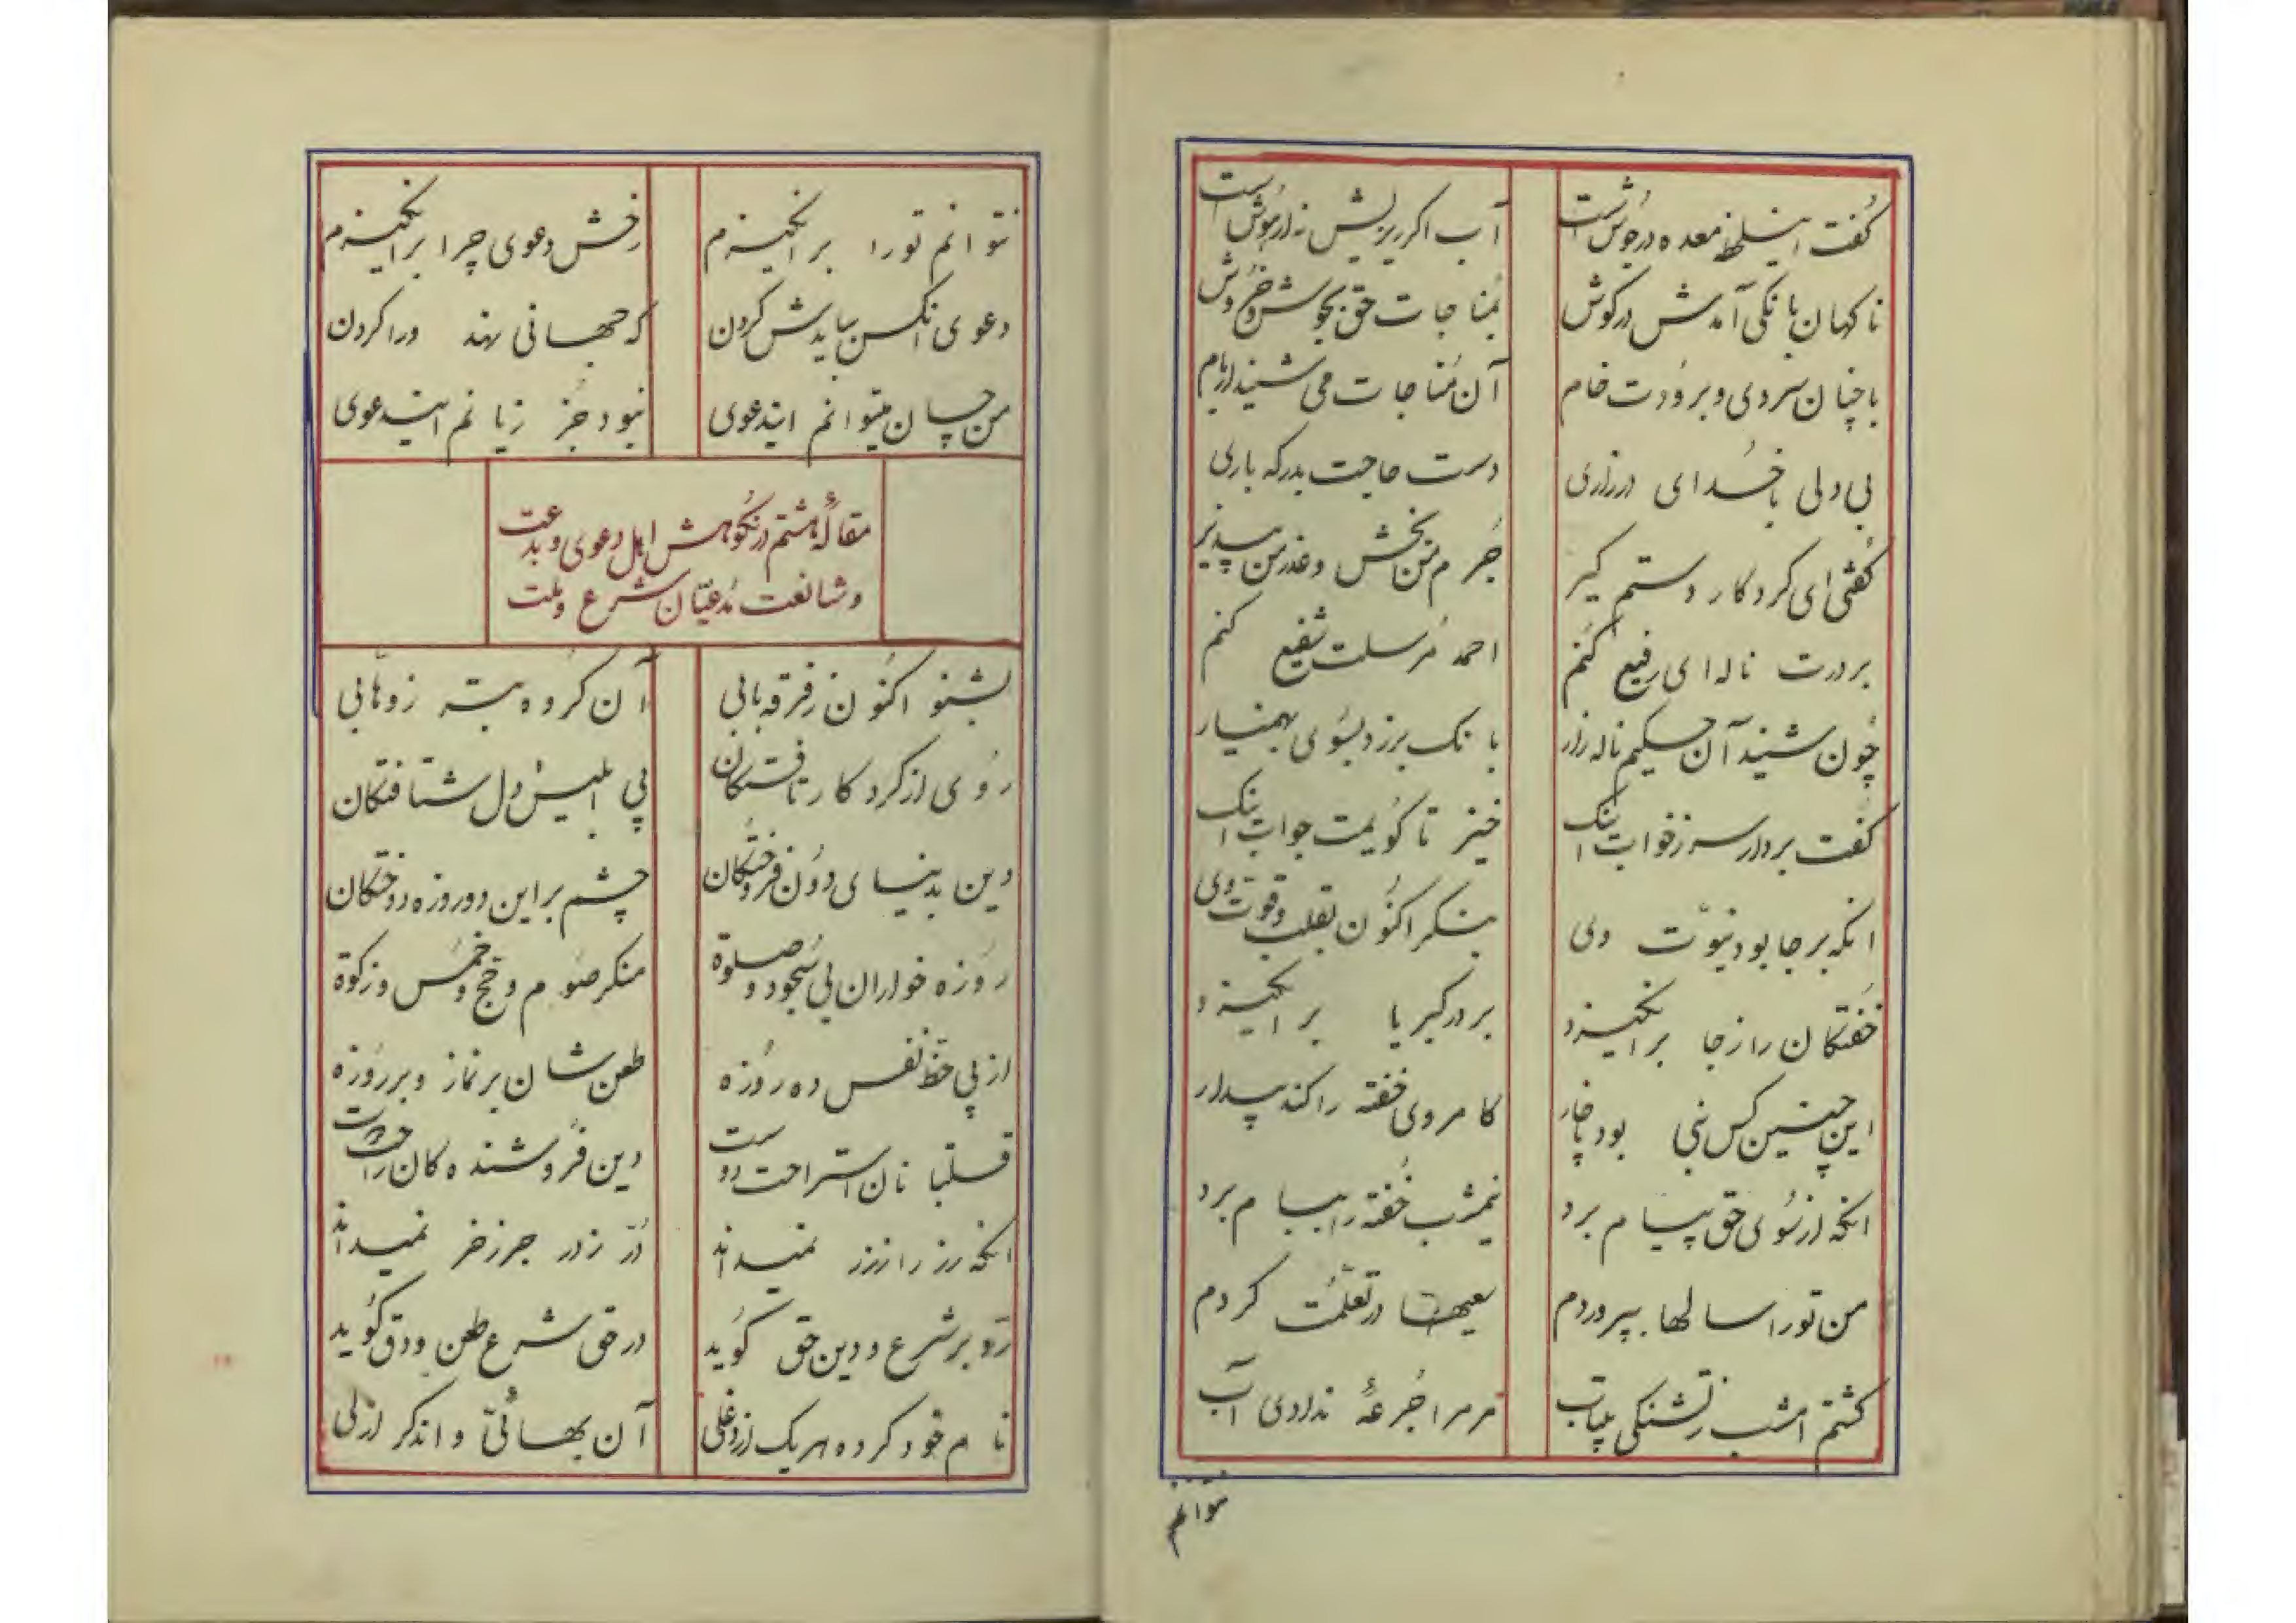 گفت اینسلط معده در جوش است آب اگر ریزیش نه از هوش است
ناکهان بانکی آمدش در کوش بمُناجات حق بجوش و خروش
با چنان سردی و برودت خام آن مُناجات می شنید از بام
بی دلی با خُدای در زاری دست حاجت بدرکه باری
کفتی ای کردکار دستم کیر جُرم من بخش و عذر من بپذیر
بردرت ناله‌ای رفیع کُنم احمد مُرسلت شفیع کنم
چون شنید آن حکیم ناله زار بانک بر زد بسوی بهمنیار
کفت بردار سر ز خواب اینک خیز تا کویمت جواب اینک
انکه بر جا بود نبوّت وی بنکر اکنون بقلب و قوت وی
خفتکان را ز جا برانکیزد بر در کبریا برانکیزد
این چنین کس نبی بود ناچار کامر وی خفته را کند بیدار
انکه از سُوی حق پیام برد نیمشب خُفته را بیام برد
من تورا سالها بپروردم سعیها در تعلّمت کردم
کشتم امشب ز تشنکی بیتاب مر مرا جُرعهٔ ندادی آب
نتوانم
نتوانم تورا برانکیزم رخش دعوی چرا برانکیزم
دعوی انکس ببایدش کردن که جهانی نهند ورا کردن
من چسان میتوانم ایندعوی نبود جُز زیانم ایندعوی
مقالهٔ هشتم در نکوهش اهل دعوی و بدعت
و شانعت مُدعیّان شرع و ملت
بشنو اکنون ز فرقه بابی آن کروه بتر ز وهّابی
روی از کردکار تافتکان پی ابلیس دل شتافتکان
دین بدنیای دون فروختکان چشم بر این دو روزه دوختکان
روزه خواران بی سُجود و صلوة منکر صوم و حج و خمس و زکوة
از پی حظ نفس ده روزه طعن‌شان بر نماز و بر روزه
قلتبانان استراحت دوست دین فروشندهکان راحت
انکه رز را ز رز نمیداند دُرّ ز در جز ز خز نمیداند
ردّ بر شرع و دین حق کوید در حق شرع طعن و دق کوید
نام خود کرده هر یک از دغلی آن بهائی و اندکر ازلی